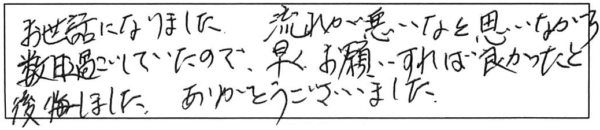 お世話になりました。流れが悪いなと思いながら
数日過ごしていたので、早くお願いすれば良かったと
後悔しました。ありがとうございました。